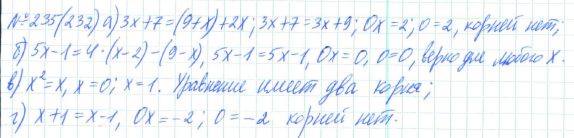 №235(232) а) 3x+7=(9+x)+2x; 3x+7=3x+9; 0x=2; 0=2, корней нет;
б) 5x-1=4·(x-2)-(9-x), 5x-1=5x-1, 0x=0, 0=0, верно для любого x.
в) x²=x, x=0; x=1. Уравнение имеет два корня;
г) x+1=x-1, 0x=-2; 0=-2 корней нет.